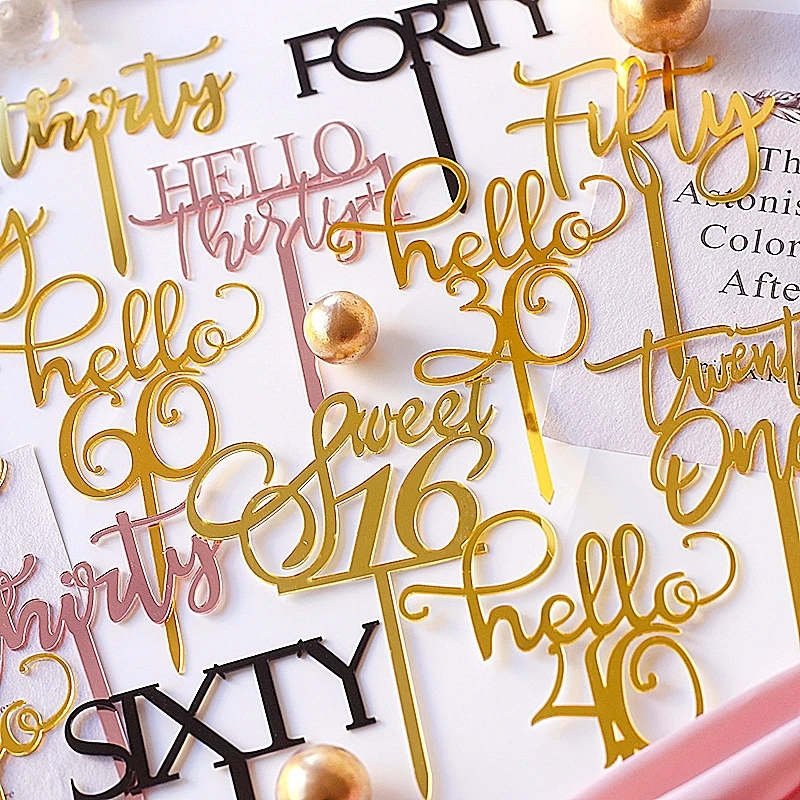 FORTY
thirty
Fifty
HELLO
Thirty+1
hello
30
Th
Astonis
Color
Afte
hello
60
twent
One
Sweet
16
thirty
hello
40
SIXTY